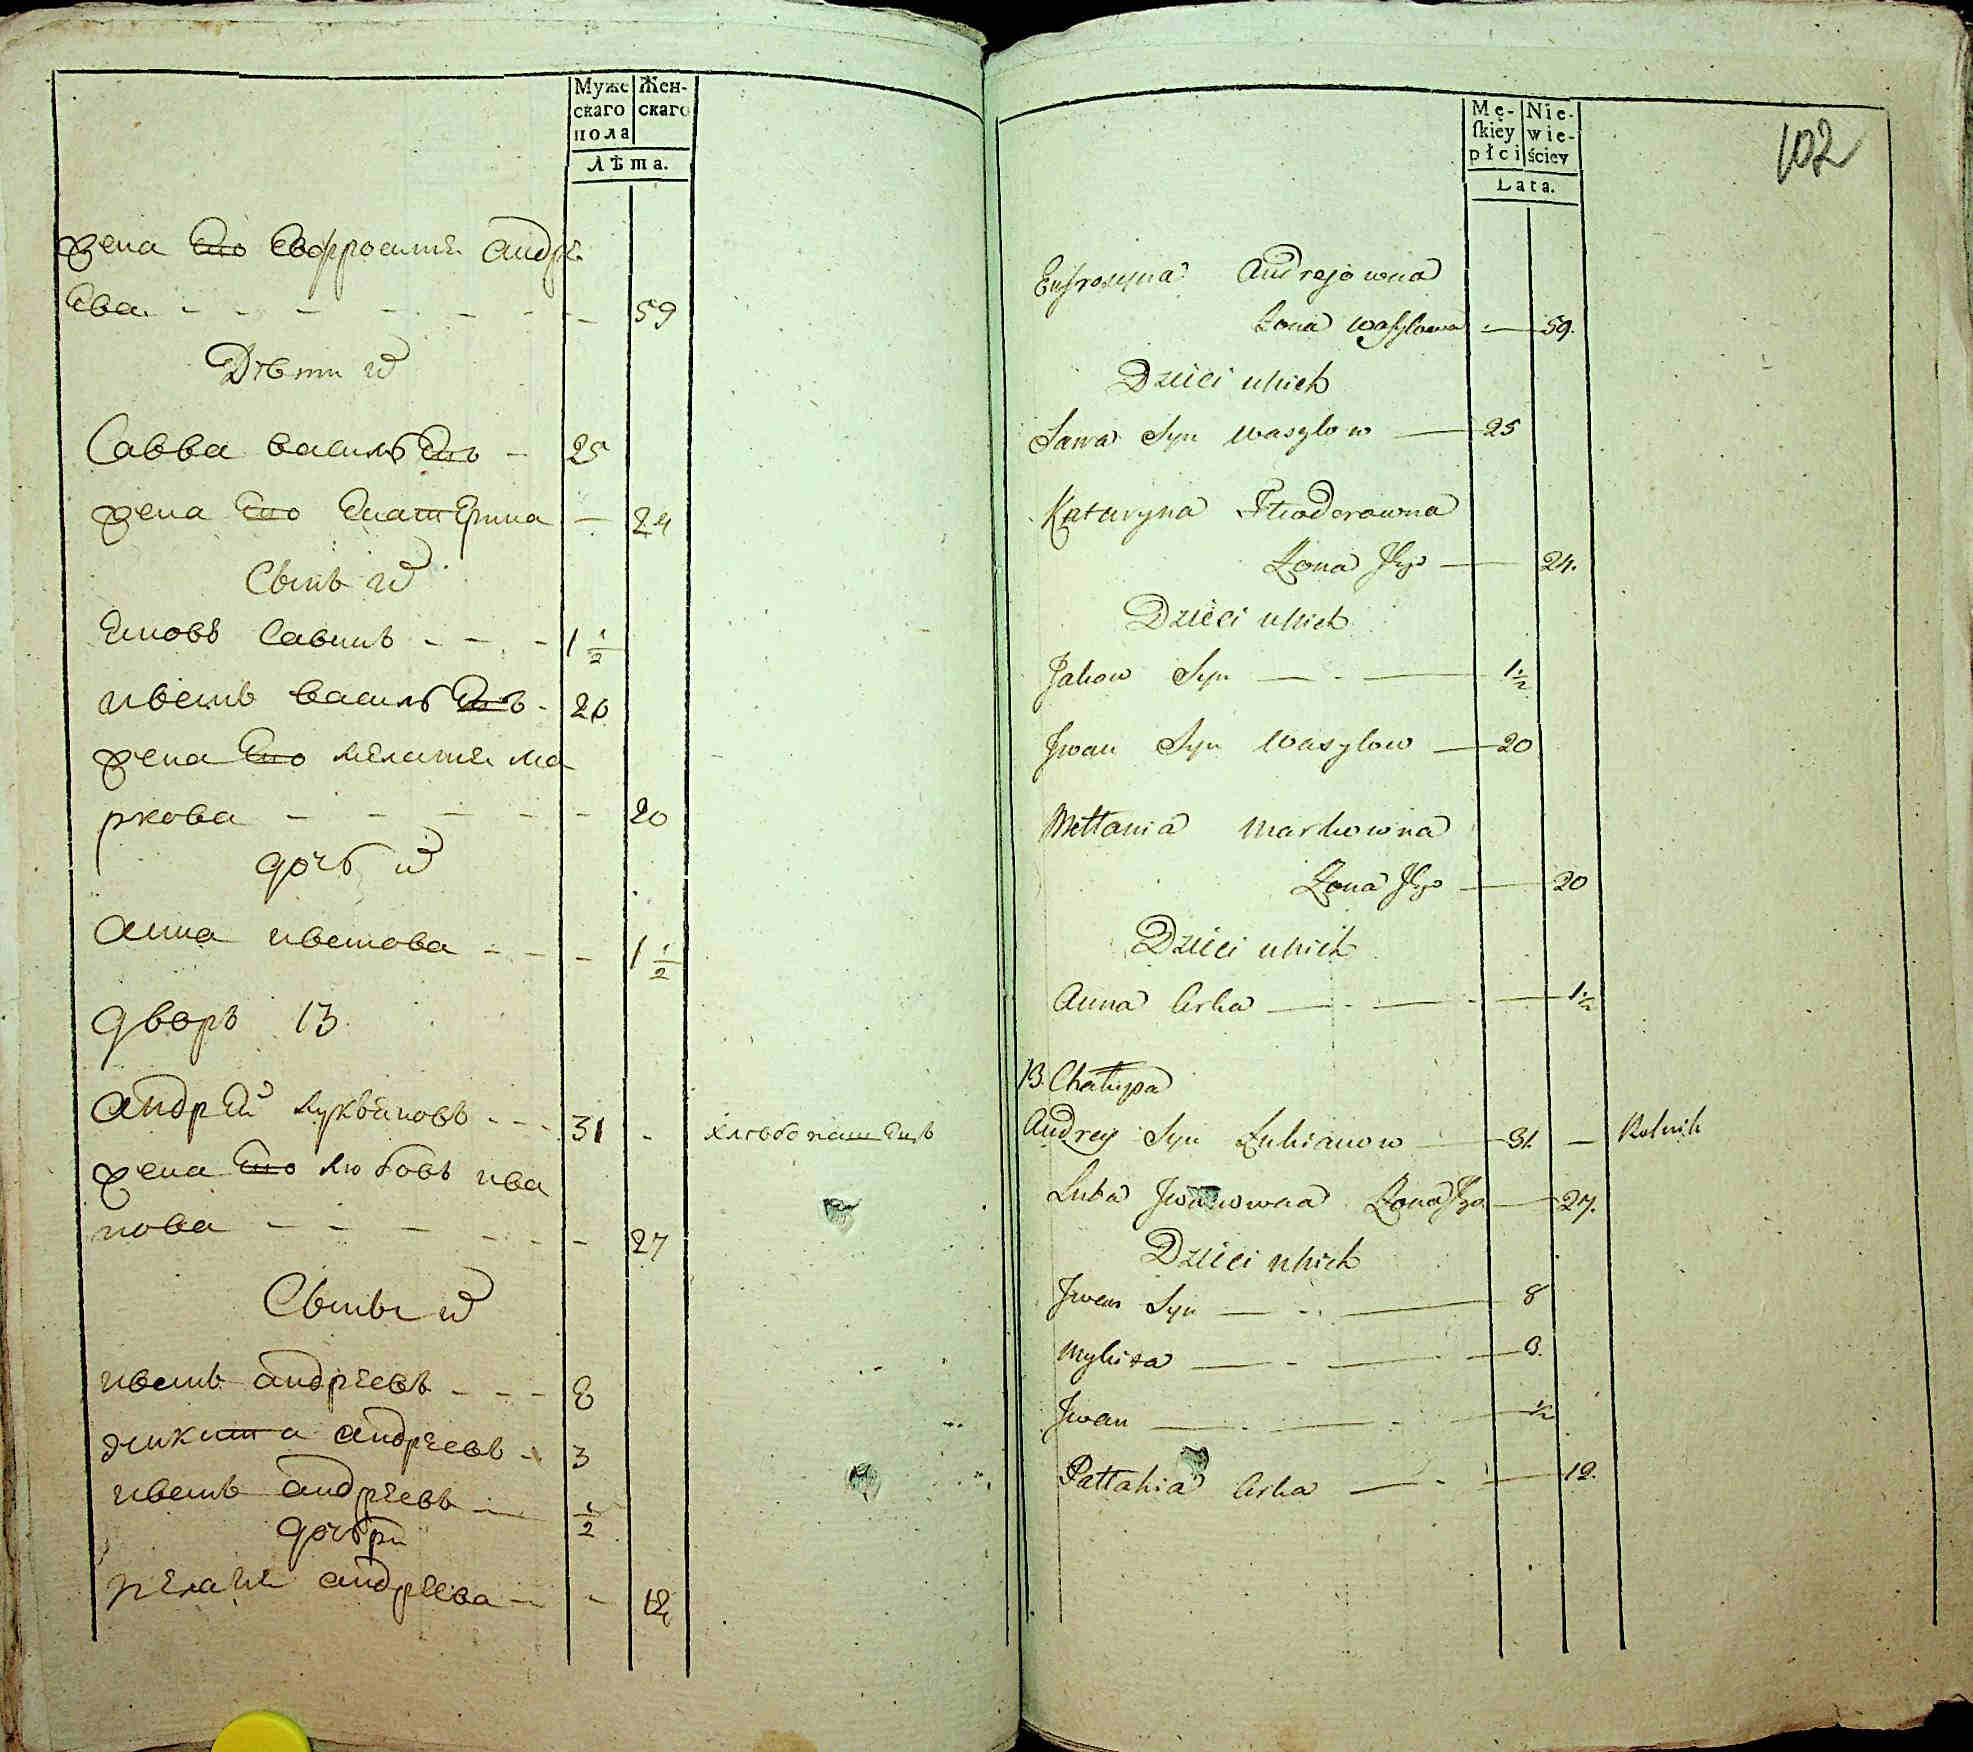 Муже
скаго
пола
Жен-
скаго
Лѣта.
жена Его Евфросинія андрѣ
Ева. 59
Дѣти их
Савва васильЕвъ 25
жена Его Екатерина 24
Сынъ их
Яковъ Савинъ 1 1/2
иванъ васильЕвъ 20
жена Его меланія ма
ркова 20
дочь их
анна иванова 1 1/2
дворъ 13
андрЕй лукьяновъ 31 хлѣбопашЕцъ
жена Его любовь ива
нова 27
Сыны их
иванъ андрѣевъ 8
никита андрѣевъ 3
иванъ андрѣевъ 1/2
дочьри
пелагия андрѣева 12
Mę-
ſkiey
płci
Nie-
wie-
ściey
Lata.
102
Eufrozyna Andrejowna
Zona Wasylowa 59.
Dzieci u nich
Sawa Syn Wasylow 25
Kataryna Fteodorowna
Zona Jego 24.
Dzieci u nich
Jakow Syn 1 1/2
Jwan Syn Wasylow 20
Mełania Markowna
Zona Jego 20
Dzieci u nich
Anna Corka 1 1/2
13. Chałupa
Andrey Syn Lukianow 31. Rolnik
Luba Jwanowna Zona Jego 27.
Dzieci u nich
Jwan Syn 8
Mykita 3.
Jwan 1/2
Pałłahia Corka 12.